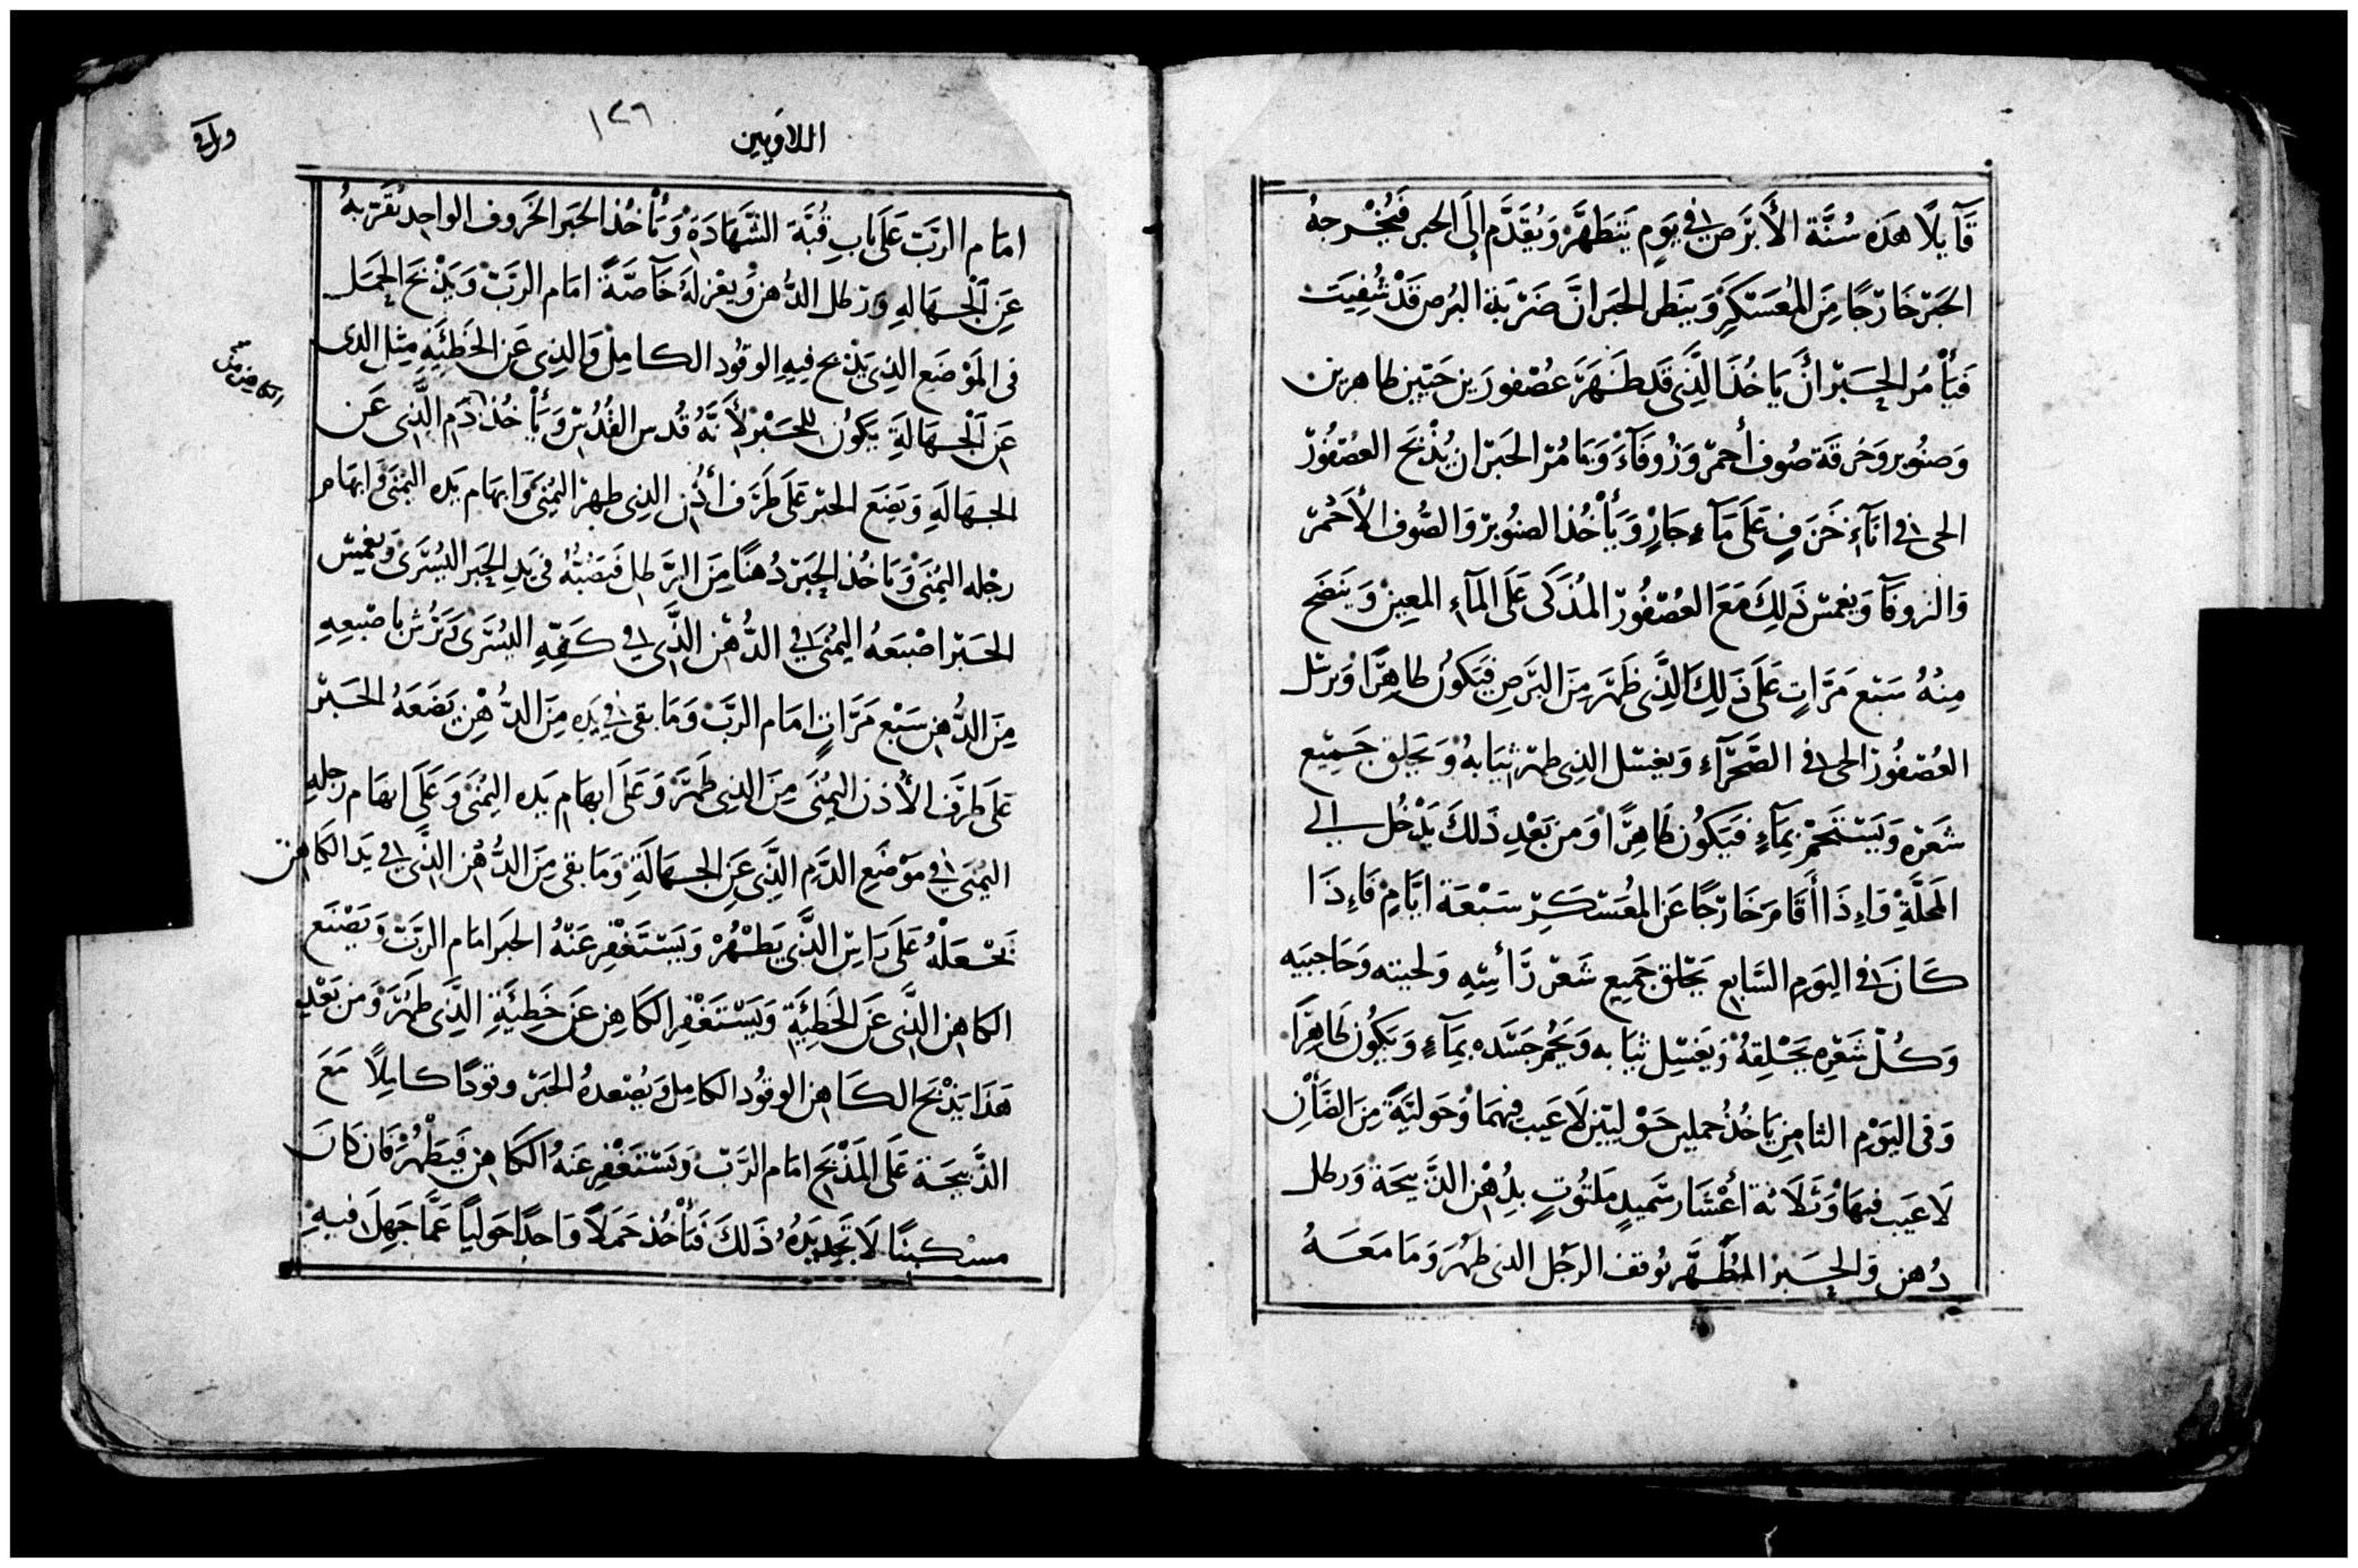 قَآيلًا هَذه سُنَّة الأَبرَص فِي يَومٍ يَتَطَهَّر وَيُقَدَّم إلَى الحبر فَيُخْرجهُ
الحَبر خَارجًا مِنَ المُعَسكَرِ وَينَظر الحَبر انَّ ضَربَة البُرص قَدْ شُفِيَت
فَيَأمُر الحِبَر أنْ يَاخُذَ الَّذِى قَد طَهَرَ عُصْفورَين حَيَّين طاهرين
وَصنُوبر وَخرقَة صُوف أحمر وَزُوفَآءَ وَيَامُر الحَبر ان يُذْبَح العُصْفُوْر
الحى فِي انَآءِ خَزَفٍ عَلَى مَآءِ جَارٍ وَيَأخُذ الصنُوبر وَالصُوف الأَحْمر
وَالزوفَآ وَيغمس ذَلِكَ مَعَ العُصْفُور المُذَكَى عَلَى المَآءِ المعِين وَيَنضَح
مِنهُ سَبع مَرَّاتٍ عَلَى ذَلِكَ الَّذِى طَهَر مِنَ البَرَصِ فيَكوُن طاهِرًا وَيرسَل
العُصْفُور الحى فِي الصَّحرَآءِ وَيغسل الذِى طهر ثيَابهُ وَيحَلق جَمِيع
شَعَره وَيَستَحمْ بمَآءٍ فَيَكُون طَاهِرًا وَمن بَعْدِ ذَلكَ يَدْخُل الى
المَحَلَّةِ وَاِذَا أقَامَ خَارجًا عَن المُعَسكَرِ سَبْعَة ايَّامٍ فَاِذَا
كَانَ فِي اليَوم السَّابع يَحْلق جَميع شَعر رَأسِهِ وَلحيته وَحَاجبَيه
وَكُل شَعرِه يَحْلِقهُ وَيَغسِل ثيَابه وَيحُمر جَسَده بمَآءٍ وَيَكُون طَاهِرًا
وَفى اليَوْم الثامِن يَاخُذُ حملين حَوْليَيْن لَا عَيب فيهمَا وَحَوليَّةً مِنَ الضَأن
لَا عَيَب فيهَا وَثَلَاثة أعْشَار سَّميدٍ مَلتُوتٍ بِدُهْن الذَبيحَة وَرطل
دُهن وَالحِبر المُطَهِّر يُوقف الرَجُل الذى طَهُرَ وَمَا مَعَهُ
١٢٦
اللاويين
امَام الربَّ عَلَى بَابِ قُبَّة الشَّهَادَةِ وَيَأخُذ الحَبر الخَروف الواحِد يُقَرّبهُ
عَنِ الْجهَالهِ وَرَطل الدُّهن وَيعْزلهُ خَآصَّةً امَام الربّ وَيَذْبَح الحَمَل
فى المَوْضَع الذِى يَذْبح فيهِ الوقُود الكامِل وَالذِى عَن الخَطئَيهِ مِثل الذى
عَن الْجهَالَةِ يَكوُن للحَبْر لأَنهُ قُدس القُدُس وَيَأخُذ دَم الَّذِى عَن
الجهَالَةِ وَيَضَع الحَبر عَلَى طَرَف أذُن الذِى طهر اليُمنَى وَابهَام يَده اليُمنَى وَابهَام
رجْله اليُمنَى وَيَاخُذ الحِبَر دُهنًا مِنَ الرَطل فَيصُبُّهُ فى يَدِ الحَبَر اليُسرَى وَيغمس
الحَبر اصْبعَهُ اليُمنَى فِي الدُّهْن الَّذِي فِي كَفِّهِ اليُسرَى وَيَرُش باصْبعِهِ
مِنَ الدُّهن سَبْع مَرَّاتٍ امَام الربّ وَمَا بقى فِي يَدِهِ مِنَ الدُّهْن يَضَعَهُ الحَبر
عَلَى طرَف الأُذن اليُمنَى مِنَ الذِى طَهَر وَعَلَى ابهَام يَده اليُمنَى وَعَلَى ابهَام رجلهِ
اليُمنَى فِي مَوْضَعِ الدَم الَّذِى عَن الجهَالَةِ وَمَا بقى مِنَ الدُّهْن الَّذِي فِي يَد الكَاهِن
يَجْعَلْهُ عَلَى رَاسِ الَّذِى يَطْهُرْ وَيَستَغْفِر عَنهُ الحَبر امَام الربّ وَيَصْنَع
الكَاهن الَّذِى عَن الخَطِئَيةِ وَيَسْتَغْفِر الكَاهِن عَن خَطِيئَةِ الَّذِى طَهُرَ وَمن بَعْدِ
هَذَا يَذْبَح الكَاهن الوقُود الكَامِل وَيُصْعدهُ الحَبر وقودًا كامِلًا مَعَ
الذَّبيحَة عَلَى المَذْبَح امَام الرَبّ وَيَسْتَغْفِر عَنهُ الكَاهِن فَيَطْهُر فَان كَانَ
مسْكينًا لَا تَجِد يَدَهُ ذَلكَ فَيَأْخُذ حَمَلًا وَاحدًا حَوليًا عَمَّا جَهِلَ فيهِ